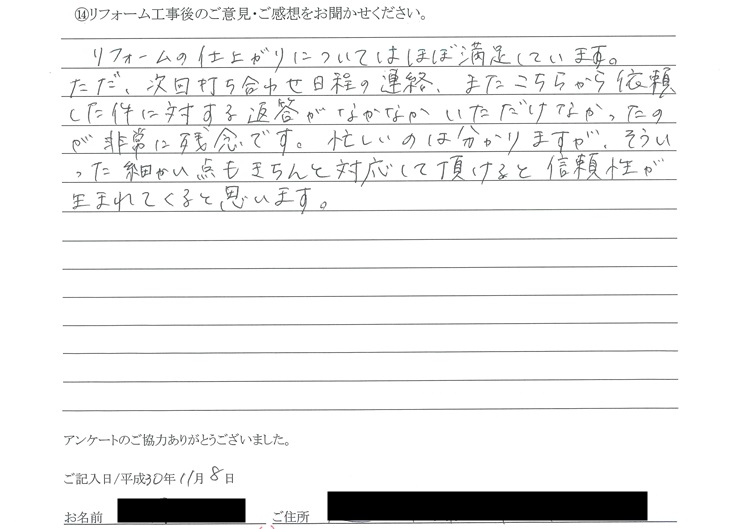 ⑭リフォーム工事後のご意見・ご感想をお聞かせください。
リフォームの仕上がりについてはほぼ満足しています。
ただ、次回打ち合わせ日程の連絡、またこちらから依頼
した件に対する返答がなかなかいただけなかったの
が非常に残念です。忙しいのは分かりますが、そうい
った細かい点もきちんと対応して頂けると信頼性が
生まれてくると思います。
アンケートのご協力ありがとうございました。
ご記入日/平成30年11月8日
お名前 ご住所